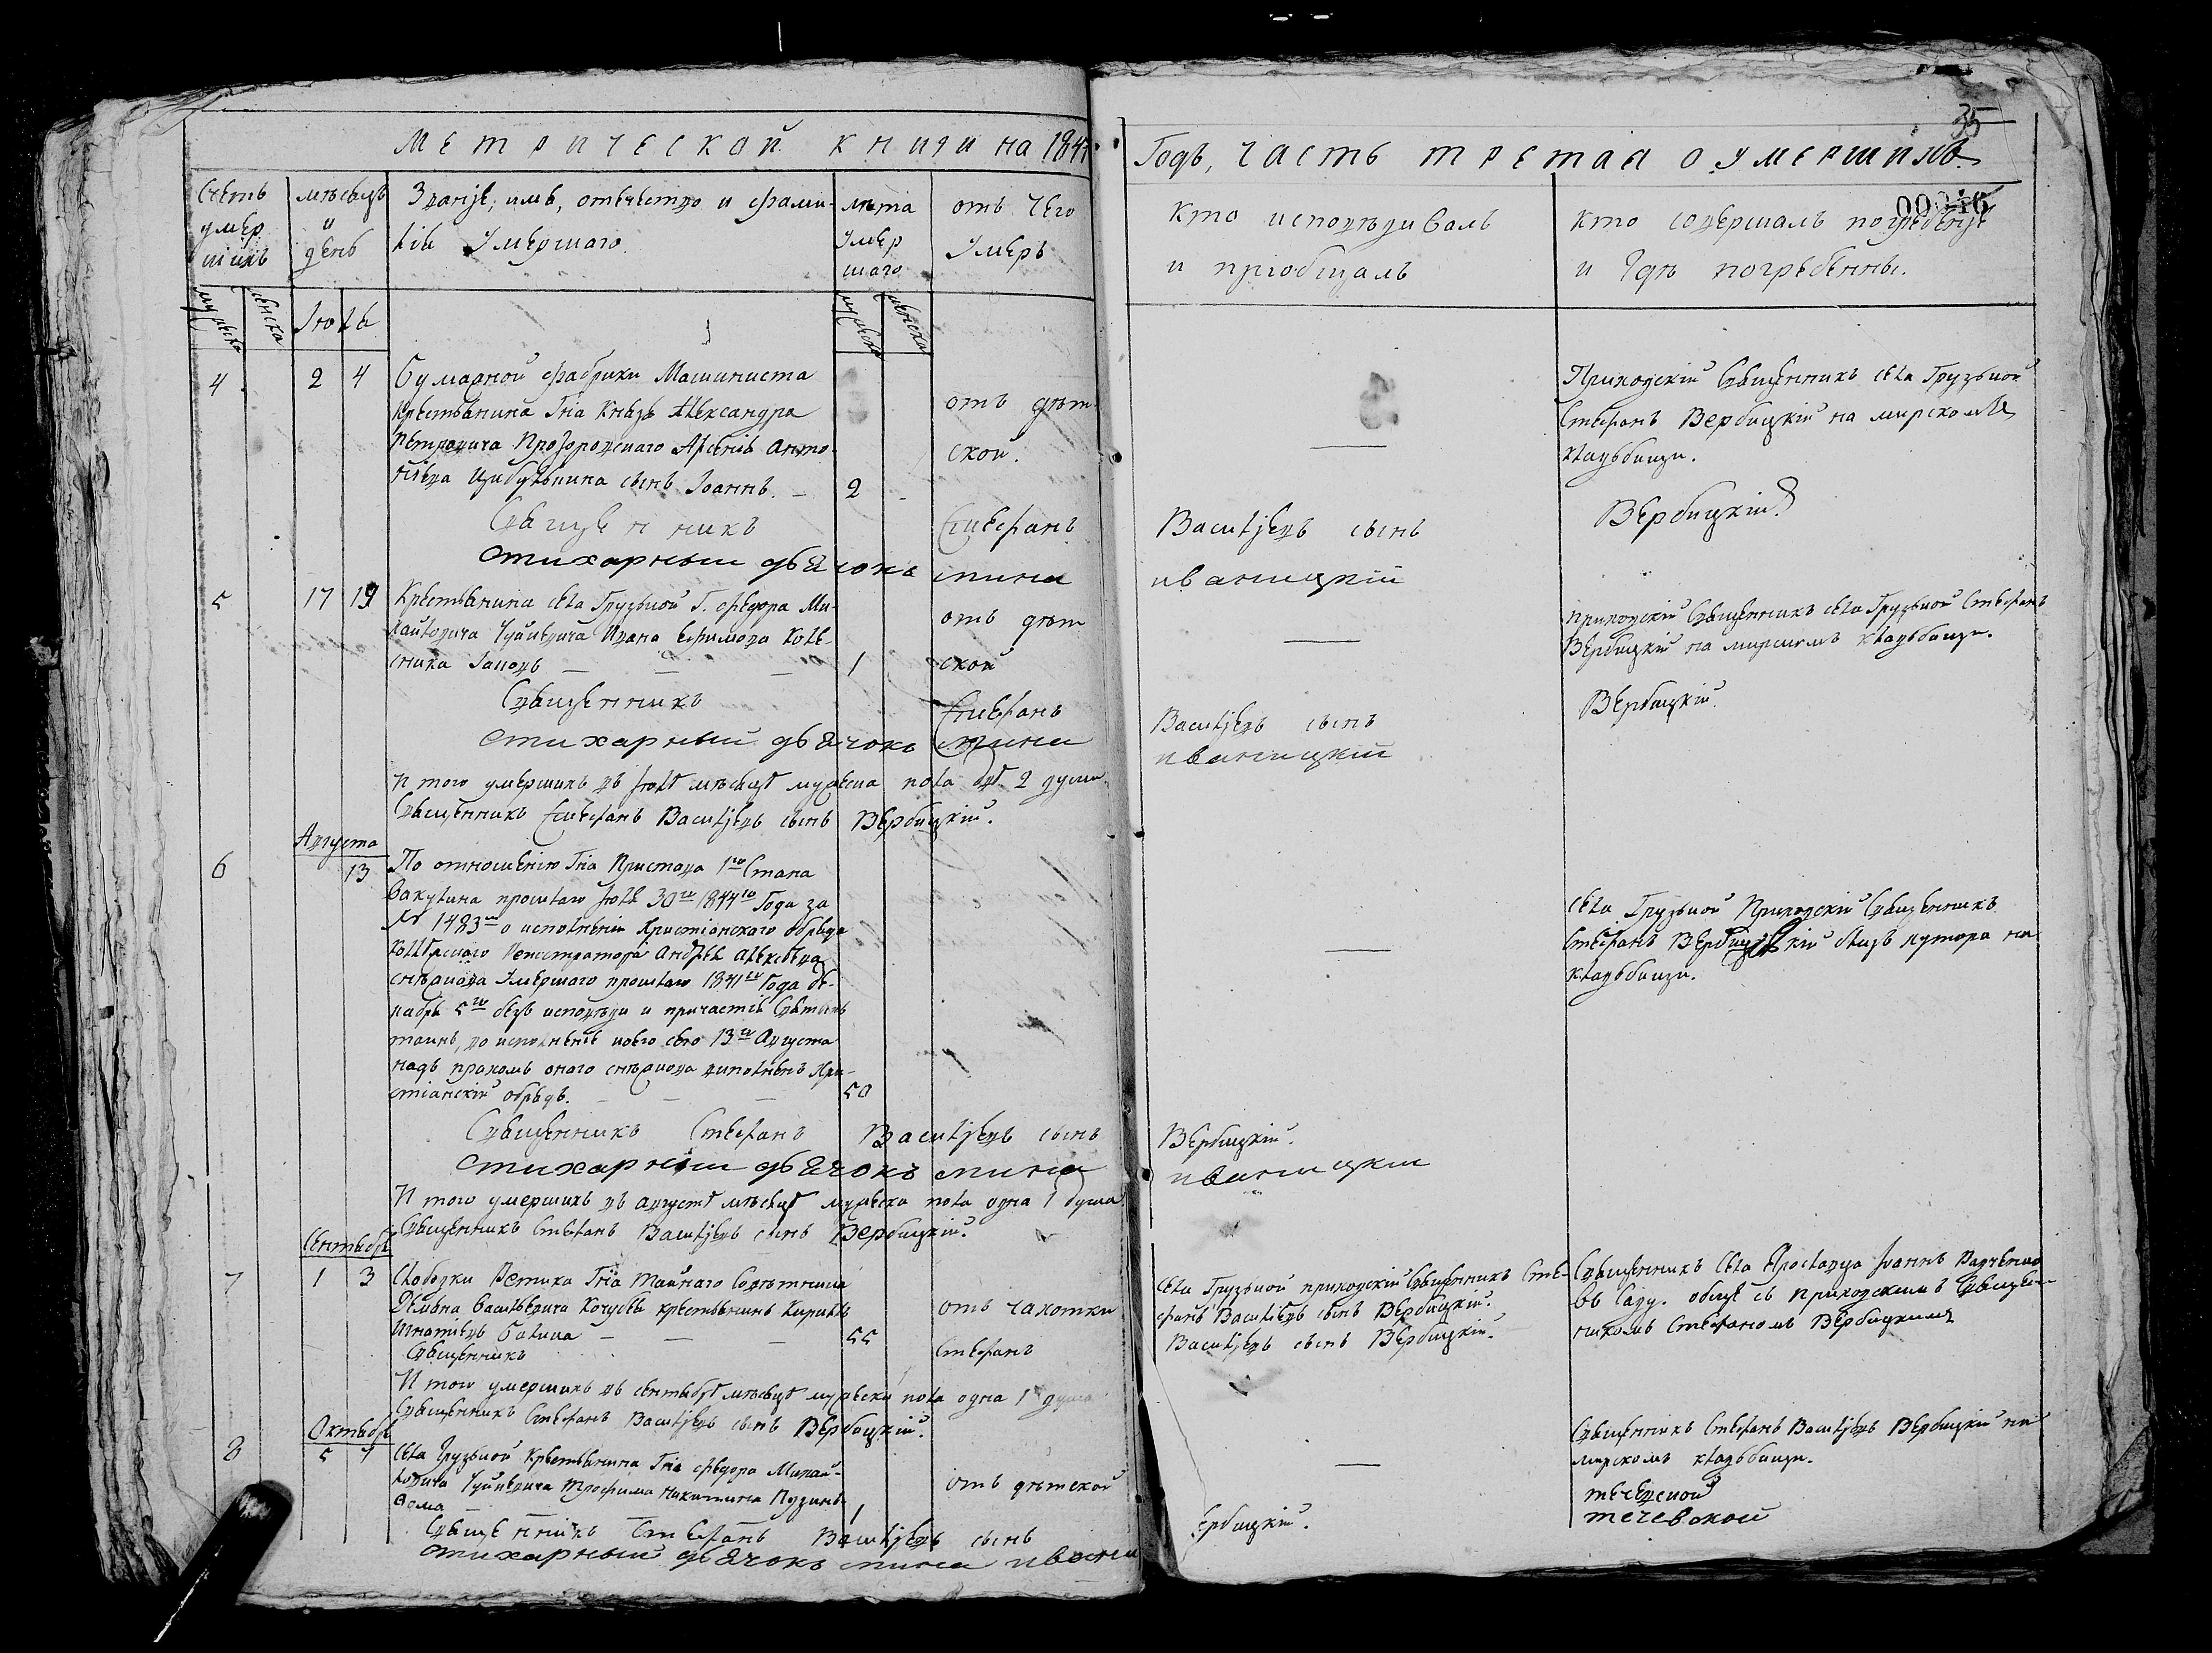 Метрической книги на 1844
Счетъ умершихъ
мѣсяцъ и день
Званіе, имя, отечество и фамилія Умершаго
лѣта Умершаго
отъ чего Умеръ
мужеска
женска
Іюля
мужеска
женска
4
2 4
Бумажной фабрики Машиниста
Крестьянина Гна Князя Александра
Петровича Прозоровскаго Арсенія Анто-
ніева сынъ Іоаннъ.
2
отъ дѣт-
ской.
Священникъ Стефанъ
стихарный дьячокъ мина
5
17 19
Крестьянина села Грузской Г. Федора Ми-
хайловича Ивана Ефимова Коле-
сника Іаковъ
1
отъ дѣт
ской
Священникъ Стефанъ
стихарный дьячокъ мина
И того умершихъ въ Іюлѣ мѣсяцѣ мужеска пола двѣ 2 души.
Священникъ Стефанъ Васильевъ сынъ Вербицкій.
Августа
6
13
По отношенію Гна Пристава 1го Стана
Вакулина прошлаго Іюля 30го 1844го Года за
№ 1483мъ о исполненіи Христіанскаго обряда
Коллежскаго Регистратора Андрея Алексѣева
умершаго прошлаго 1841го Года де-
кабря 5го безъ исповѣди и причастія Святыхъ
таинъ, во исполненіе коего сего 13го Августа
надъ прахомъ онаго выполненъ Хри-
стіанскій обрядъ.
50
Священникъ Стефанъ Васильевъ сынъ
стихарный дьячокъ мина
И того умершихъ въ августѣ мѣсяцѣ мужеска пола одна 1 душа
Священникъ Стефанъ Васильевъ сынъ Вербицкій.
Сентября
7
1 3
Слободки Гна Тайнаго Совѣтника
Демьяна Васильевича Кочубея крестьянинъ Кириллъ
Игнатіевъ
55
отъ чахотки
Священникъ Стефанъ
И того умершихъ въ сентябрѣ мѣсяцѣ мужеска пола одна 1 душа
Священникъ Стефанъ Васильевъ сынъ Вербицкій.
Октября
8
5 7
Села Грузской Крестьянина Гна Федора Михай-
ловича Трофима Никитина
Фома
1
отъ дѣтской
Священникъ Стефанъ Васильевъ сынъ
стихарный дьячокъ мина ивани
35
Годъ, часть третая о умершихъ.
кто исповѣдивалъ и пріобщалъ
кто совершалъ погребеніе и гдѣ погребенны.
Приходскій Священникъ села Грузской
Стефанъ Вербицкій на мирскомъ
кладбищи.
Васильевъ сынъ Вербицкій.
иваницкій
приходскій Священникъ села Грузской Стефанъ
Вербицкій на мирскомъ кладбищи.
Васильевъ сынъ Вербицкій.
иваницкій
села Грузской Приходскій Священникъ
Стефанъ Вербицкій близъ хутора на
кладбищи.
Вербицкій.
иваницкій
села Грузской приходскій Священникъ Сте-
фанъ Васильевъ сынъ Вербицкій.
Васильевъ сынъ Вербицкій.
Священникъ села Іоаннъ
въ саду. обще съ приходскимъ Священ-
никомъ Стефаномъ Вербицкимъ
Священникъ Стефанъ Васильевъ Вербицкій на
мирскомъ кладбищи.
Вербицкій.